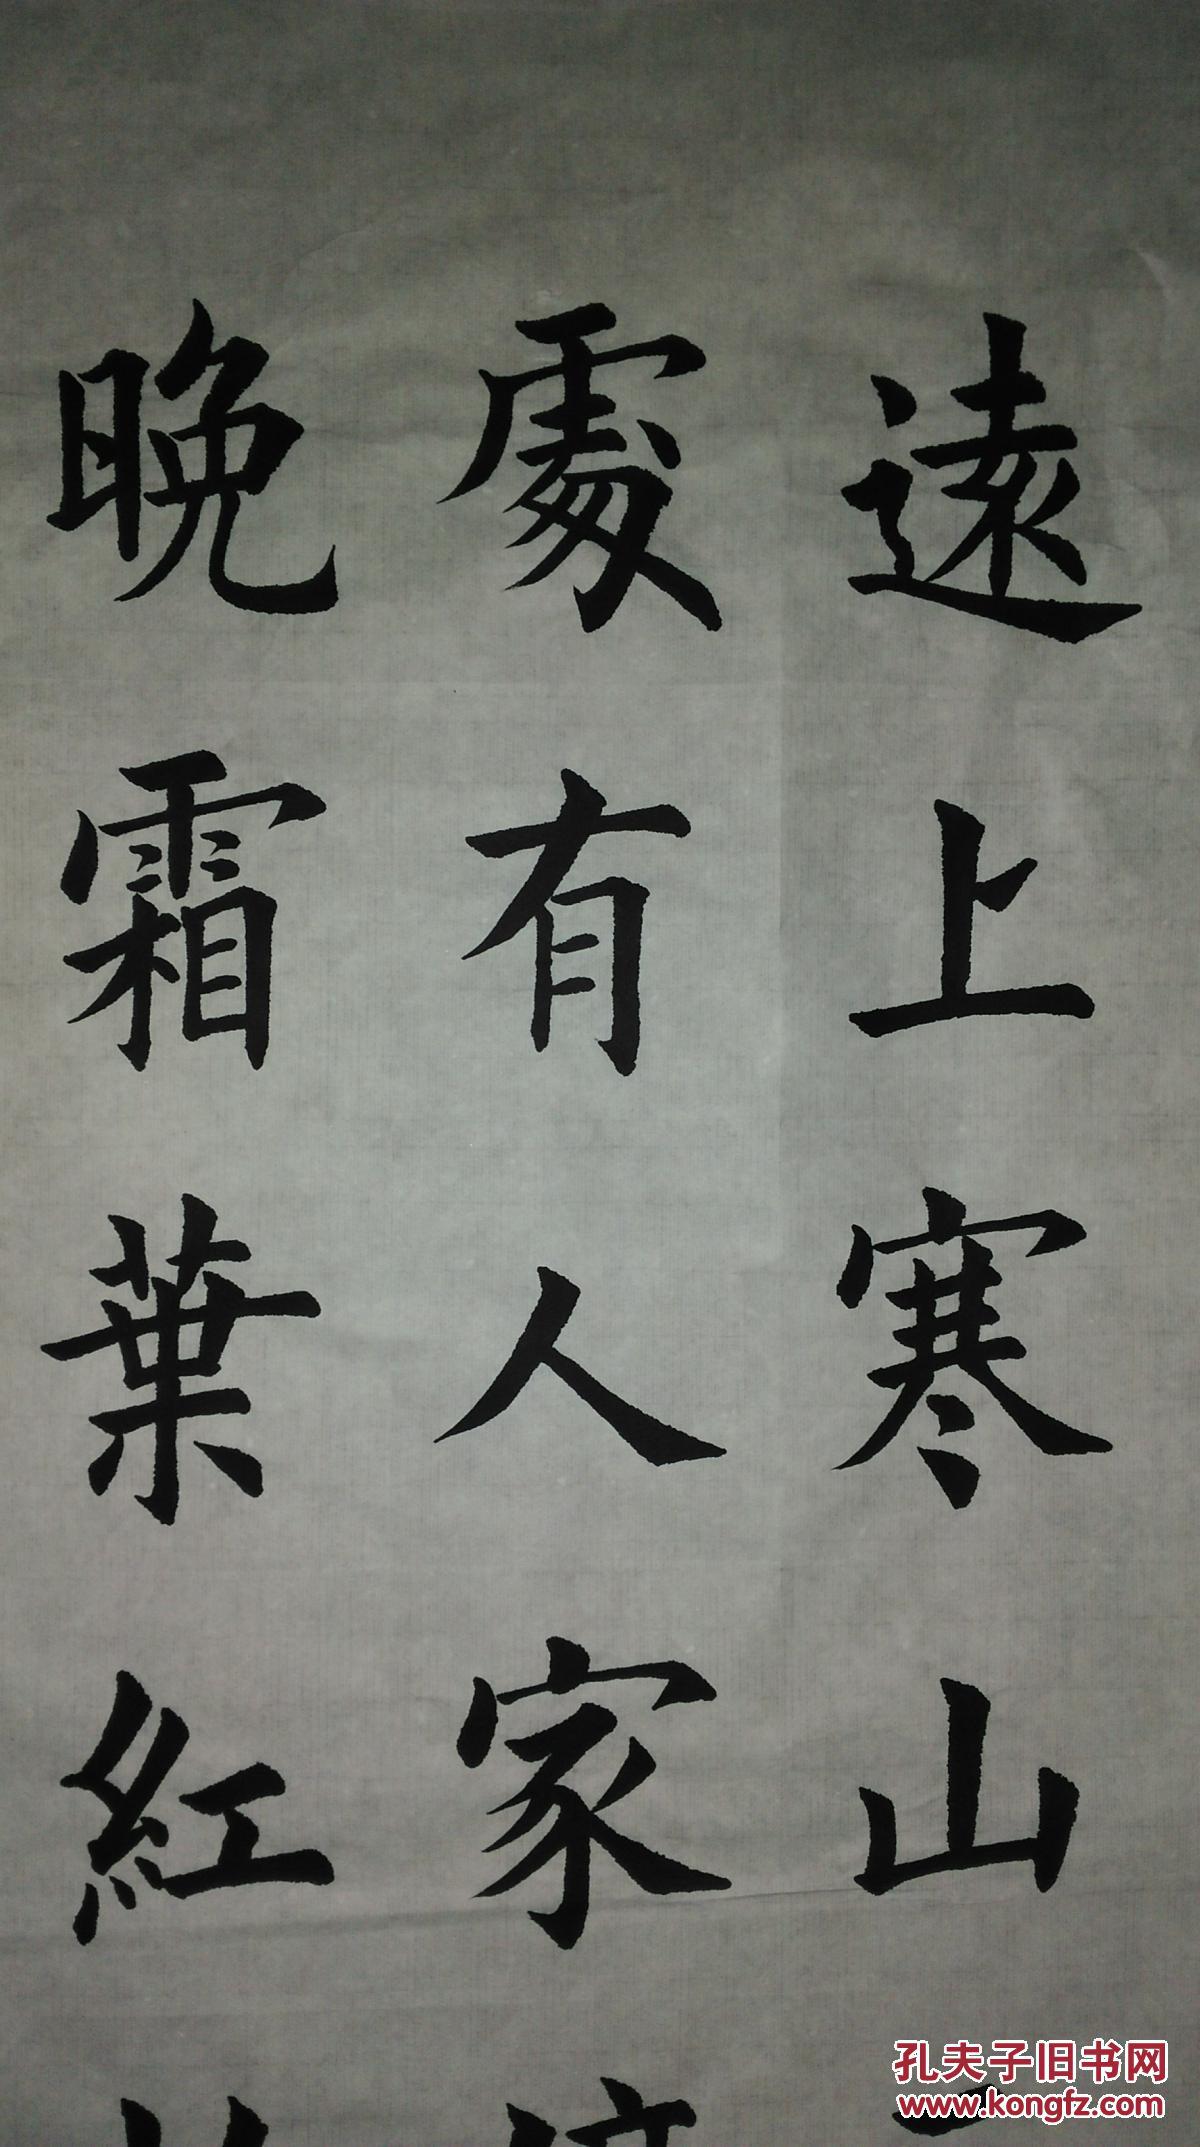 遠上寒山
處有人家
晚霜葉紅
孔夫子旧书网
www.kongfz.com